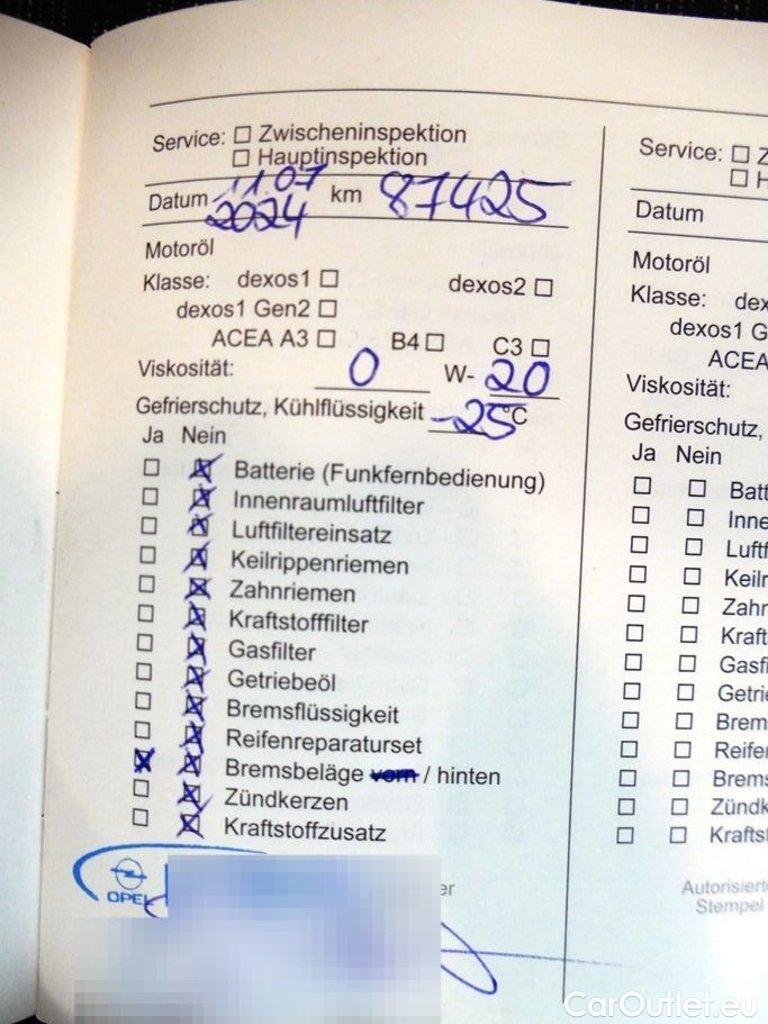 Service: ☐ Zwischeninspektion
☐ Hauptinspektion
Datum 11.07 2024 km 87425
Motoröl
Klasse: dexos1 ☐ dexos2 ☐
dexos1 Gen2 ☐
ACEA A3 ☐ B4 ☐ C3 ☐
Viskosität: 0 W- 20
Gefrierschutz, Kühlflüssigkeit -25 °C
Ja Nein
☐ ☒ Batterie (Funkfernbedienung)
☐ ☒ Innenraumluftfilter
☐ ☒ Luftfiltereinsatz
☐ ☒ Keilrippenriemen
☐ ☒ Zahnriemen
☐ ☒ Kraftstofffilter
☐ ☒ Gasfilter
☐ ☒ Getriebeöl
☐ ☒ Bremsflüssigkeit
☐ ☒ Reifenreparaturset
☒ ☒ Bremsbeläge vorn / hinten
☐ ☒ Zündkerzen
☐ ☒ Kraftstoffzusatz
OPEL
er
Service: ☐ Z
☐ H
Datum
Motoröl
Klasse: dex
dexos1 G
ACEA
Viskosität:
Gefrierschutz,
Ja Nein
☐ ☐ Batt
☐ ☐ Inne
☐ ☐ Luftf
☐ ☐ Keilr
☐ ☐ Zahr
☐ ☐ Kraft
☐ ☐ Gasfi
☐ ☐ Getri
☐ ☐ Brem
☐ ☐ Reife
☐ ☐ Brems
☐ ☐ Zündk
☐ ☐ Krafts
Autorisierte
Stempel
CarOutlet.eu